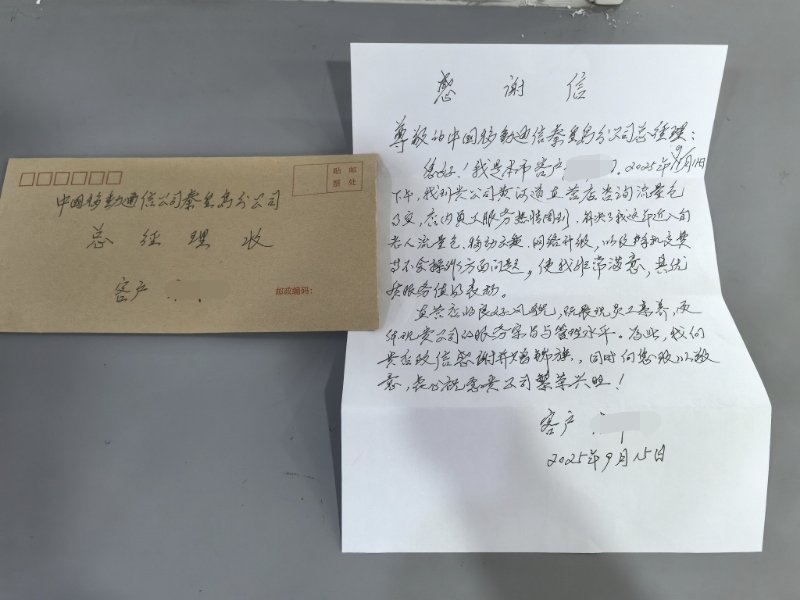 贴 邮
票 处
中国移动通信公司秦皇岛分公司
总 经 理 收
客户
邮政编码：
感 谢 信
尊敬的中国移动通信秦皇岛分公司总经理：
您好！我是本市客户 2025年9月1日
下午，我到贵公司黄河道直营店咨询流量包
事宜，店内员工服务热情周到，解决了我这邻近八旬
老人流量包、移动云盘、网络升级，以及手机交费
等不会操作方面问题，使我非常满意，其优
质服务值得表扬。
直营店的良好风貌，既展现员工素养，更
体现贵公司的服务宗旨与管理水平。为此，我向
贵店致信感谢并赠锦旗，同时向您致以敬
意，衷心祝愿贵公司繁荣兴旺！
客户
2025年9月15日